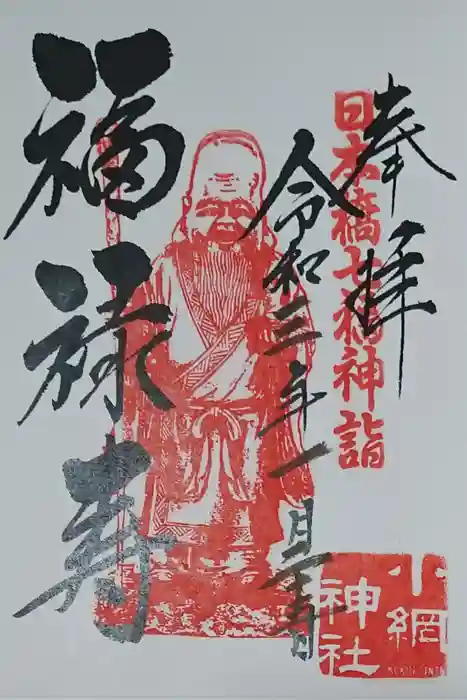 奉拝
日本橋七福神詣
令和三年一月 五日
福禄寿
小網
神社